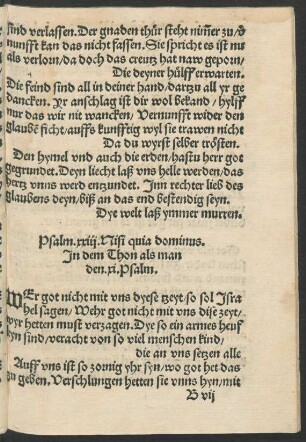 sind verlassen. Der gnaden thür steht nim̃er zu/ď
nunfft kan das nicht fassen. Sie spricht es ist nu
als verlorn/da doch das creutz hat naw geporn/
Die deyner hülff erwarten.
Die feind sind all in deiner hand/dartzu all yr ge
dancken. Yr anschlag ist dir wol bekand/hylff
nur das wir nit wancken/ Vernunfft wider den
glaubē ficht/auffs kunfftig wyl sie trawen nicht
Da du wyrst selber trösten.
Den hymel vnd auch die erden/hastu herr got
gegrundet. Deyn liecht laß vns helle werden/das
hertz vnns werd entzundet. Inn rechter lieb des
glaubens deyn/biß an das end bestendig seyn.
Dye welt laß ymmer murren.
Psalm.xxiij. Nisi quia dominus.
In dem Thon als man
den.xi.Psalm.
WEr got nicht mit vns dyese tzeyt/so sol Isra
hel sagen/Wehr got nicht mit vns dise zeyt/
wyr hetten must verzagen. Dye so ein armes heuf
leyn sind/veracht von so viel menschen kind/
die an vns setzen alle
Auff vns ist so zornig yhr syn/wo got het das
zu geben. Verschlungen hetten sie vnns hyn/mit
B vij